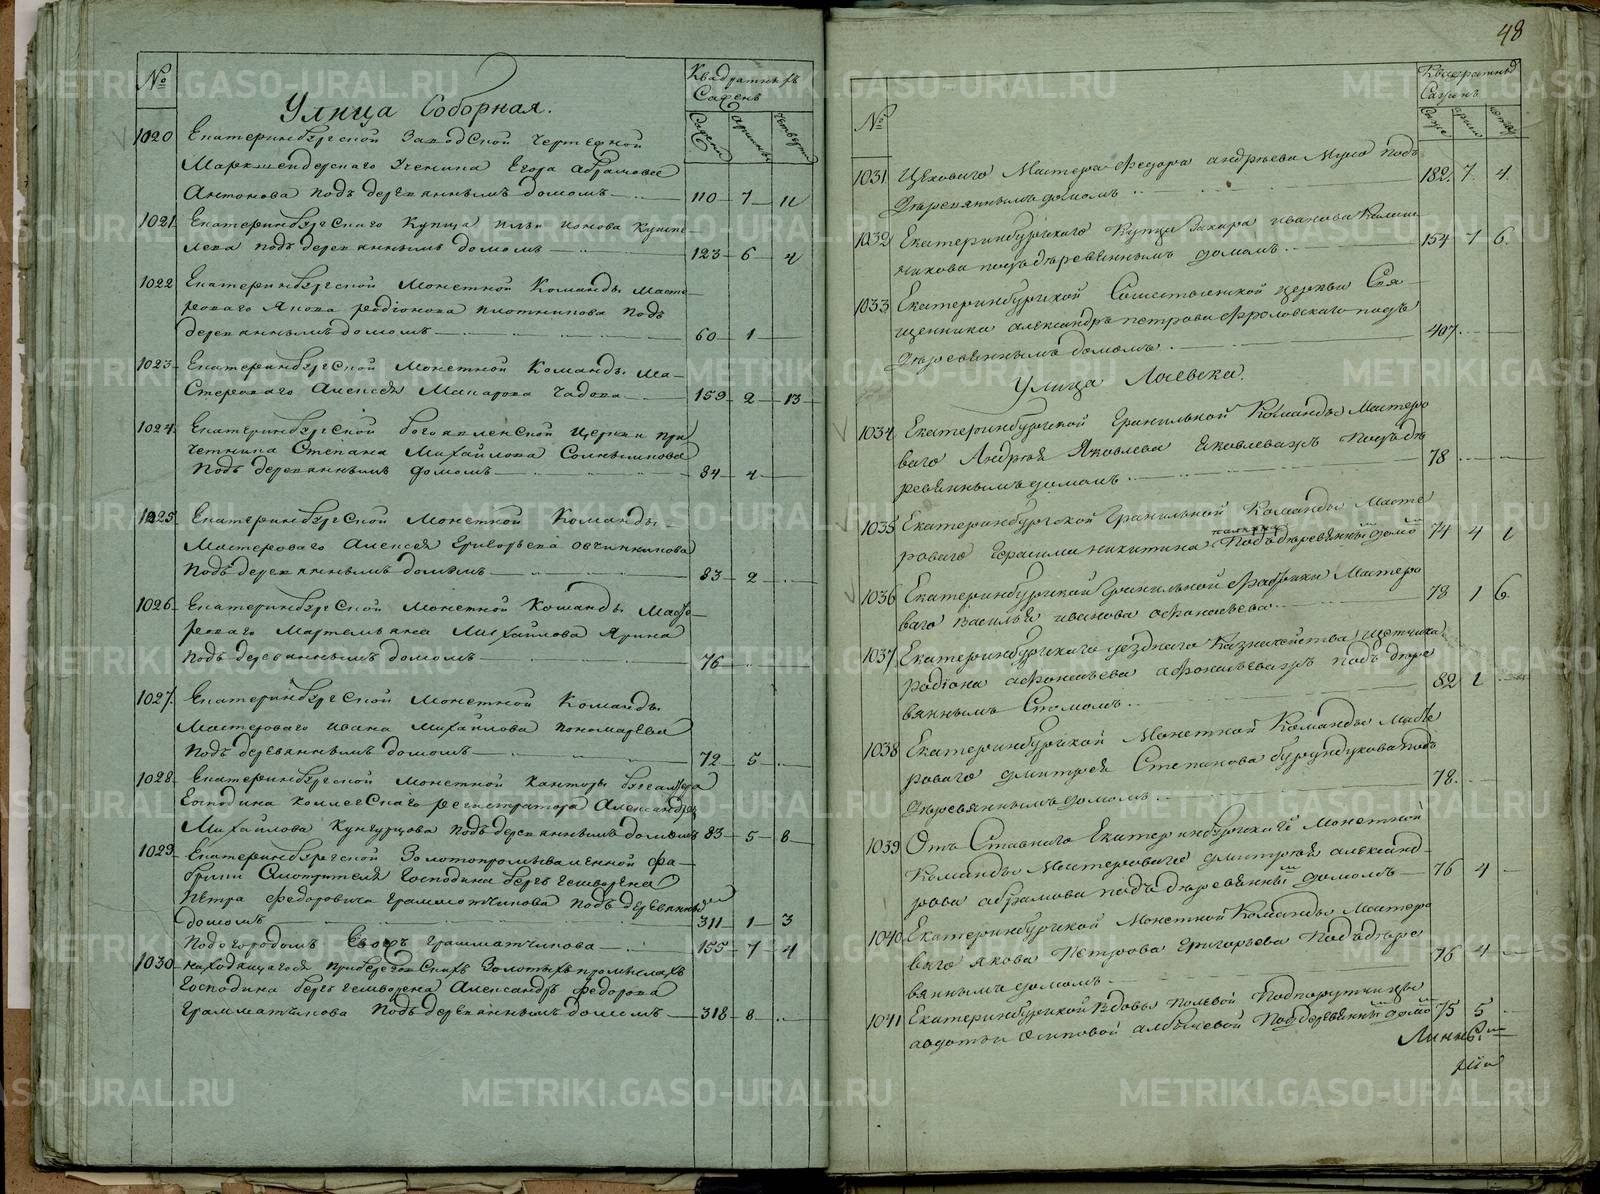 №
Квадратныхъ
Саженъ
Сажени
аршины
четверти
Улица Соборная.
1020 Екатеринбургской Заводской Чертежной
Маркшейдерскаго Ученика Егора Абрамова
Антонова подъ деревяннымъ домомъ 110 7 11
1021 Екатеринбургскаго Купца Ильи Ионова
подъ деревяннымъ домомъ 123 6 4
1022 Екатеринбургской Монетной Команды Масте
роваго Якова родіонова плотникова подъ
деревяннымъ домомъ 60 1
1023 Екатеринбургской Монетной Команды Ма
стероваго Алексея Макарова Чадова 159 2 13
1024 Екатеринбургской богоявленской Церкви при
четника Степана Михайлова
подъ деревяннымъ домомъ 84 4
1025 Екатеринбургской Монетной Команды
Мастероваго Алексея Григорьева овчинникова
подъ деревяннымъ домомъ 83 2
1026 Екатеринбургской Монетной Команды Масте
роваго Мартемьяна Михайлова Ярина
подъ деревяннымъ домомъ 76
1027 Екатеринбургской Монетной Команды
Мастероваго ивана Михайлова пономарева
подъ деревяннымъ домомъ 72 5
1028 Екатеринбургской Монетной Канторы бухгалтера
Господина коллегскаго регистратора Александра
Михайлова Кунгурцова подъ деревяннымъ домомъ 83 5 8
1029 Екатеринбургской Золотопромываленной фа
брики Смотрителя Господина бергъ гешворена
Петра Федоровича Грамматчикова подъ деревянны
домомъ 311 1 3
Подогородомъ Егоръ Грамматчикова 155 7 4
1030 находящагося приберезовскихъ Золотыхъ промыслахъ
Господина бергъ гешворена Александръ Федорова
Грамматчикова подъ деревяннымъ домомъ 318 8
48
№
Квадратныхъ
Саженъ
1031 Цеховаго Мастера Федора андреева подъ
деревяннымъ домомъ 182 7 4
1032 Екатеринбургскаго Купца Захара иванова Калаш
никова подъ деревяннымъ домомъ 154 1 6
1033 Екатеринбургской церкви Свя
щенника александръ петрова Фроловскаго подъ
деревяннымъ домомъ 407
Улица Лаевска.
1034 Екатеринбургской Гранильной Команды Мастеро
ваго Андрея Яковлева Яковлевахъ подъ де
ревяннымъ домомъ 78
1035 Екатеринбургской Гранильной Команды Масте
роваго Герасима никитина подъ деревянны домо 74 4 1
1036 Екатеринбургской Гранильной Фабрики Мастеро
ваго Василья иванова афонасьева 78 1 6
1037 Екатеринбургскаго уезднаго Казначейства щетчика
родіона афонасьева афонасьевахъ подъ дере
вяннымъ домомъ 82 1
1038 Екатеринбургской Монетной Команды Масте
роваго дмитрея Степанова бурундукова подъ
деревяннымъ домомъ 78
1039 Отъ Ставнаго Екатеринбургскаго Монетной
Команды Мастероваго дмитрея александ
рова абрамова подъ деревянны домомъ 76 4
1040 Екатеринбургской Монетной Команды Мастеро
ваго якова Петрова Григорьева подъ дере
вяннымъ домомъ 76 4
1041 Екатеринбургской Вдовы полевой Подпорутчицы
авдотьи Осиповой подъ деревянны домо 75 5
METRIKI.GASO-URAL.RU